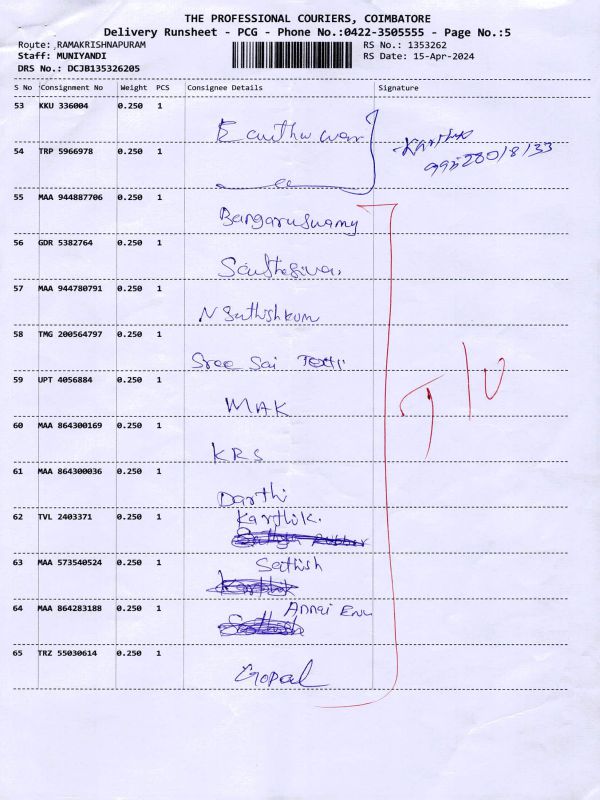 THE PROFESSIONAL COURIERS, COIMBATORE
Delivery Runsheet - PCG - Phone No.:0422-3505555 - Page No.:5
Route: ,RAMAKRISHNAPURAM RS No.: 1353262
Staff: MUNIYANDI RS Date: 15-Apr-2024
DRS No.: DCJB135326205
S No Consignment No Weight PCS Consignee Details Signature
53 KKU 336004 0.250 1
Karthik
54 TRP 5966978 0.250 1
55 MAA 944887706 0.250 1
Bangaruswamy
56 GDR 5382764 0.250 1
57 MAA 944780791 0.250 1
N Sathishkum
58 TMG 200564797 0.250 1
Sree Sai
59 UPT 4056884 0.250 1
MAK
60 MAA 864300169 0.250 1
KRS
61 MAA 864300036 0.250 1
Darthi
62 TVL 2403371 0.250 1
Karthik.
63 MAA 573540524 0.250 1
Sathish
64 MAA 864283188 0.250 1
Annai
65 TRZ 55030614 0.250 1
Gopal